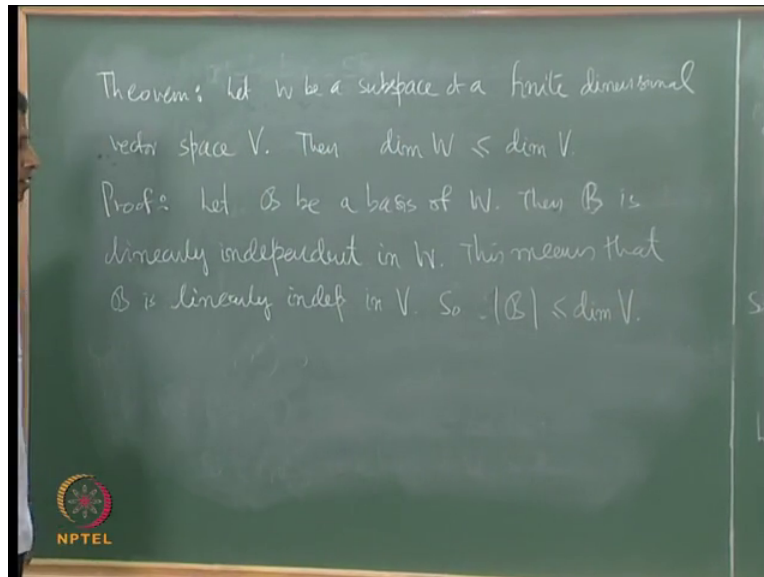 Theorem: Let W be a subspace of a finite dimensional
vector space V. Then dim W ≤ dim V.
Proof: Let B be a basis of W. Then B is
linearly independent in W. This means that
B is linearly indep in V. So |B| ≤ dim V.
S
L
NPTEL